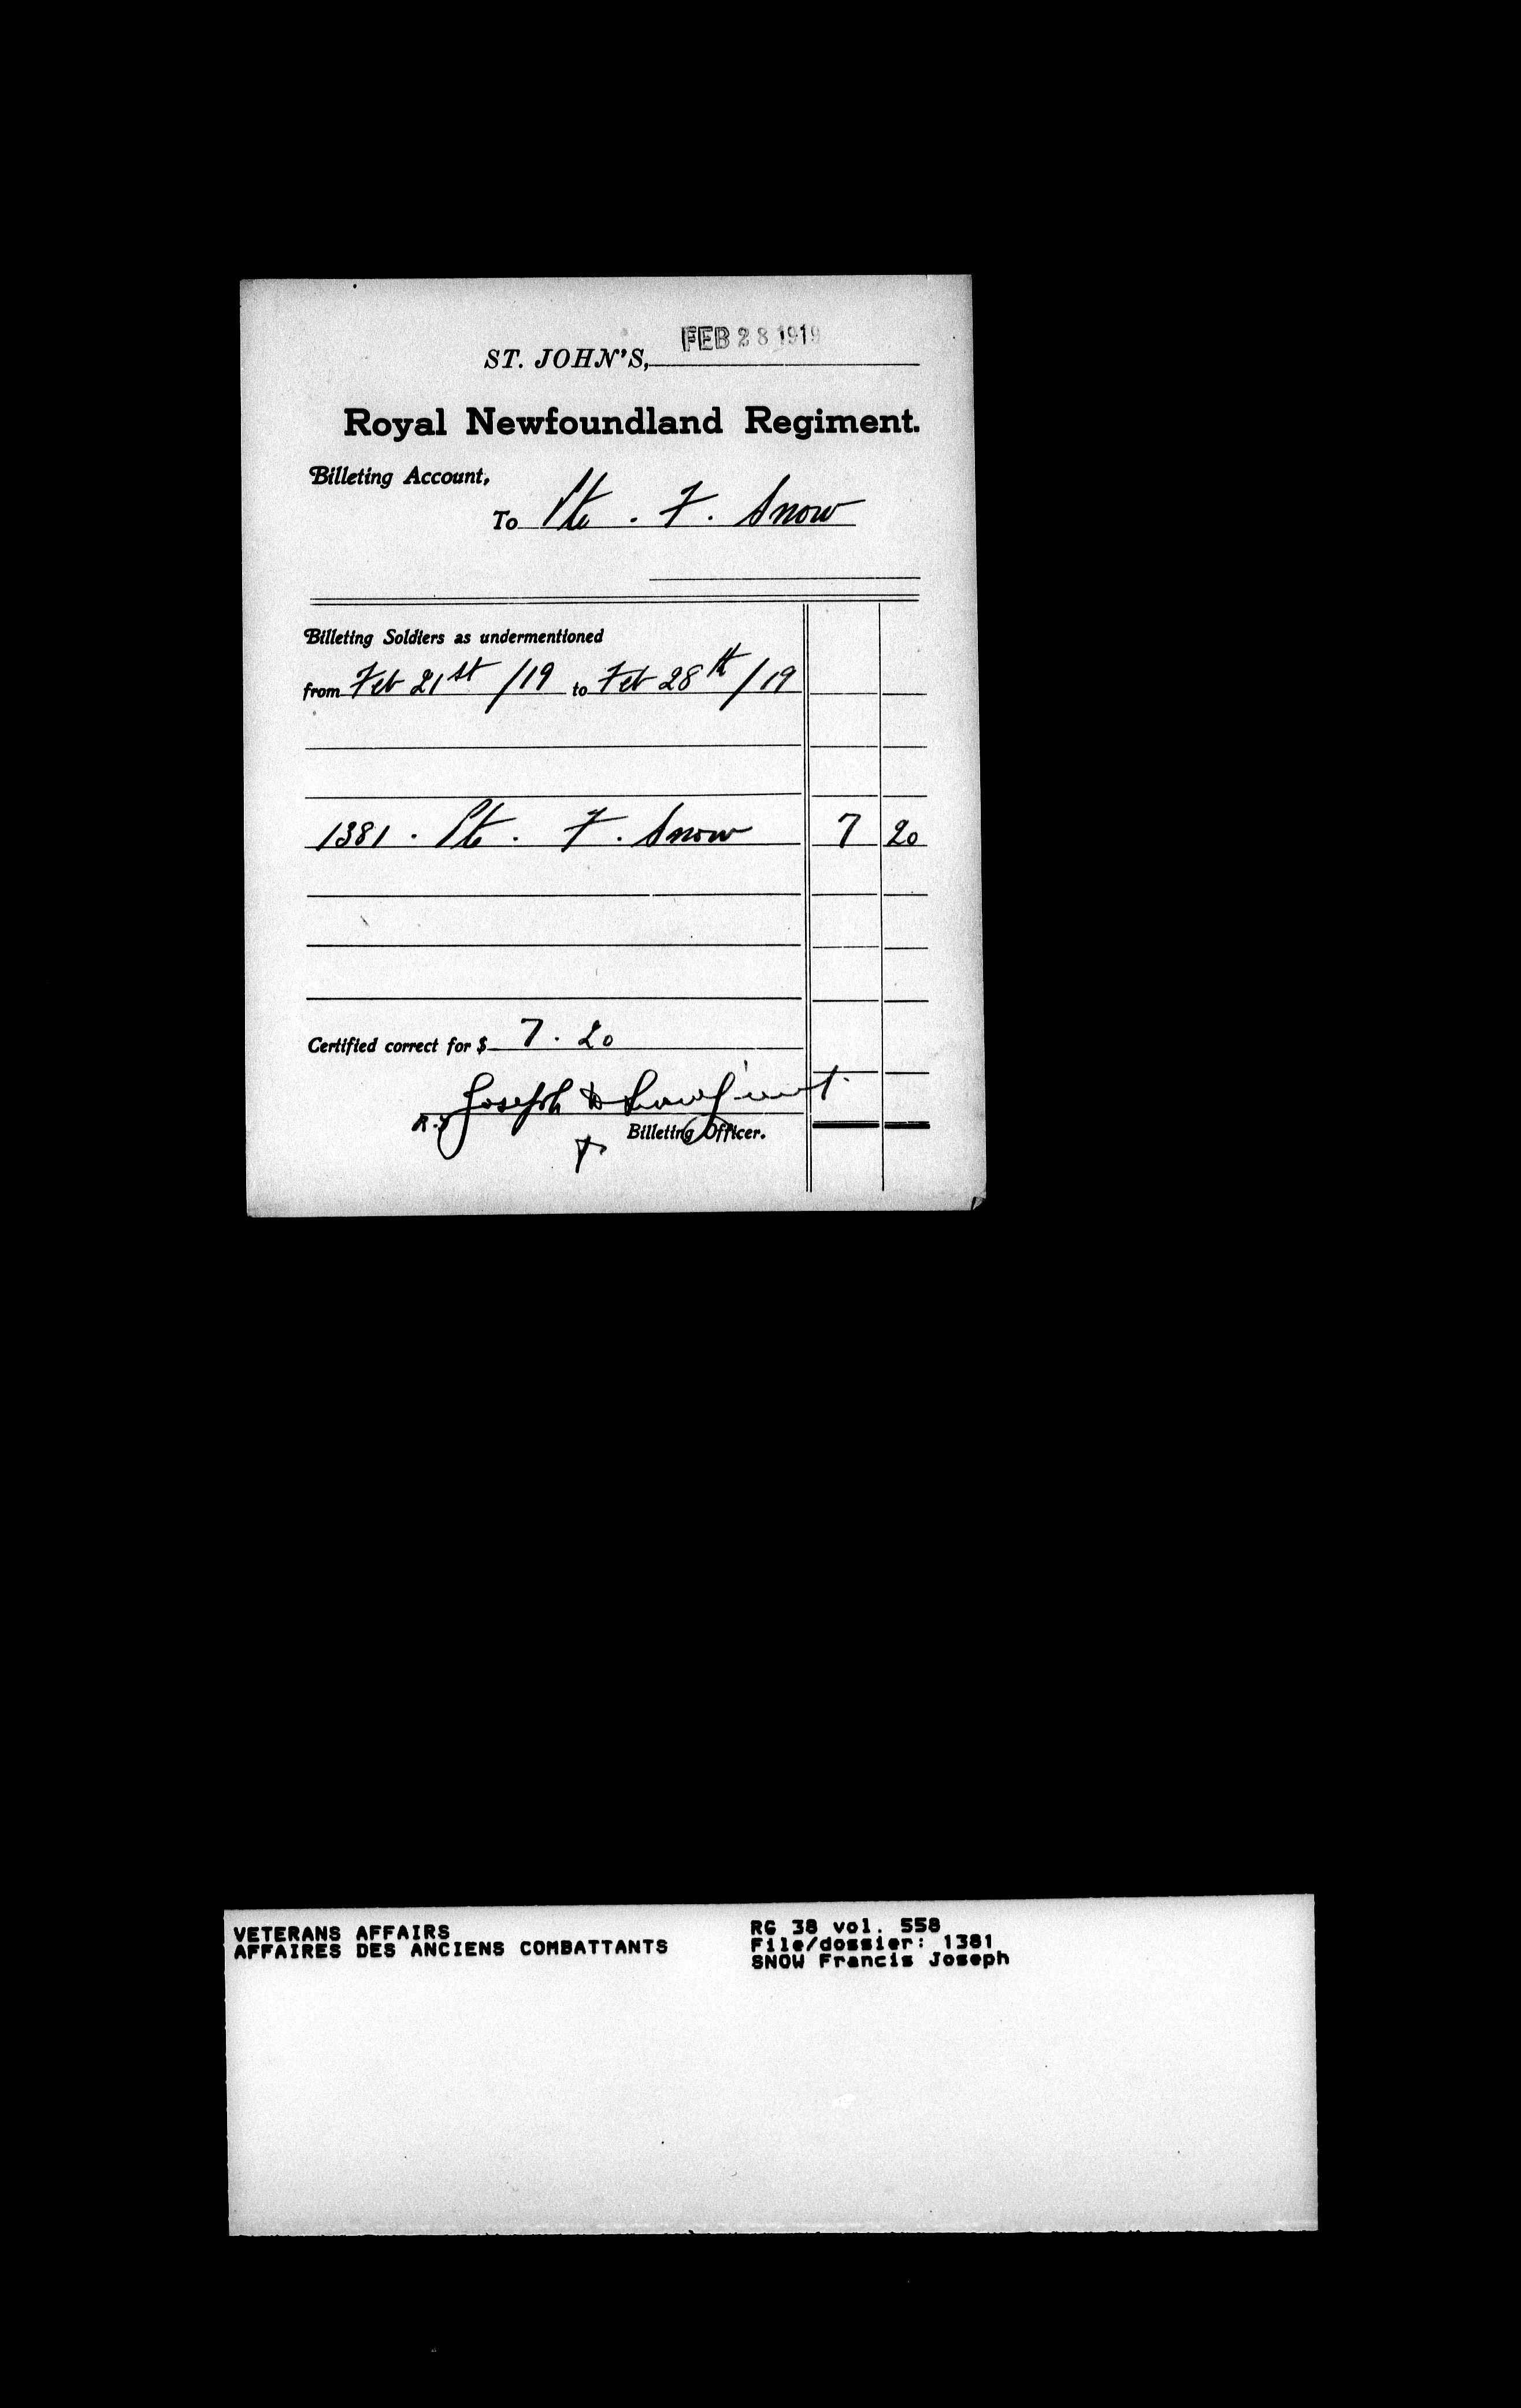 FEB 28 1919
ST. JOHN'S,
Royal Newfoundland Regiment.
Billeting Account,
To Pte. F. Snow
Billeting Soldiers as undermentioned
from Feb 21st /19 to Feb 28th /19
1381. Pte. F. Snow 7 20
Certified correct for $ 7.20
Joseph
Billeting Officer.
VETERANS AFFAIRS
AFFAIRES DES ANCIENS COMBATTANTS
RG 38 vol. 558
File/dossier: 1381
SNOW Francis Joseph